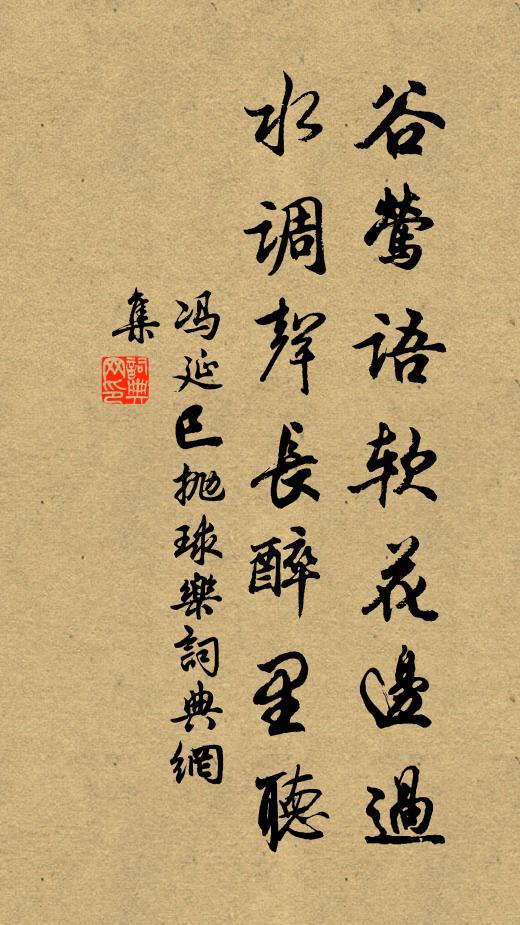 谷莺语软花邊過
水调聲長醉里聽
冯延巳抛球樂詞典網
集
詞典网印